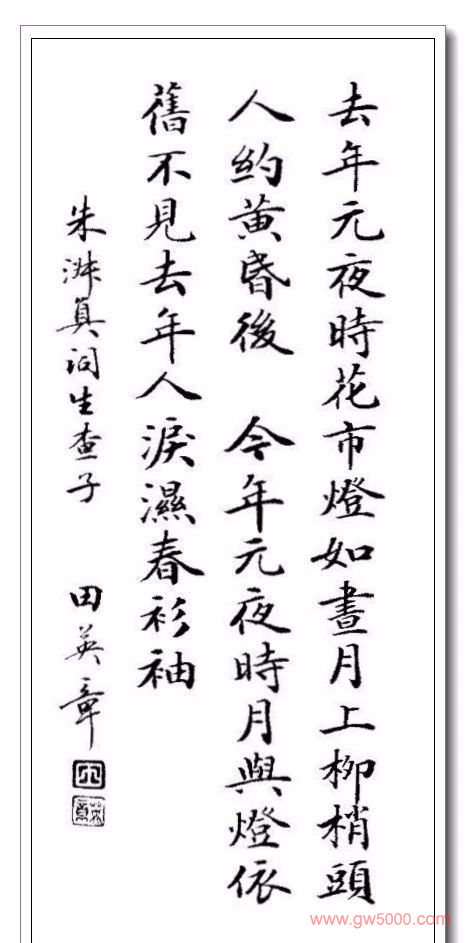 去年元夜時花市燈如晝月上柳梢頭
人約黄昏後 今年元夜時月與燈依
舊不見去年人淚濕春衫袖
朱淑真詞生查子 田英章
www.gw5000.com